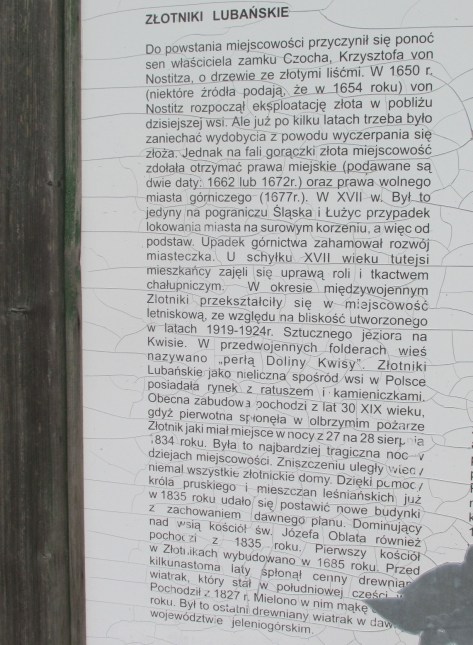 ZŁOTNIKI LUBAŃSKIE
Do powstania miejscowości przyczynił się ponoć
sen właściciela zamku Czocha, Krzysztofa von
Nostitza, o drzewie ze złotymi liśćmi. W 1650 r.
(niektóre źródła podają, że w 1654 roku) von
Nostitz rozpoczął eksploatację złota w pobliżu
dzisiejszej wsi. Ale już po kilku latach trzeba było
zaniechać wydobycia z powodu wyczerpania się
złoża. Jednak na fali gorączki złota miejscowość
zdołała otrzymać prawa miejskie (podawane są
dwie daty: 1662 lub 1672r.) oraz prawa wolnego
miasta górniczego (1677r.). W XVII w. Był to
jedyny na pograniczu Śląska i Łużyc przypadek
lokowania miasta na surowym korzeniu, a więc od
podstaw. Upadek górnictwa zahamował rozwój
miasteczka. U schyłku XVII wieku tutejsi
mieszkańcy zajęli się uprawą roli i tkactwem
chałupniczym. W okresie międzywojennym
Złotniki przekształciły się w miejscowość
letniskową, ze względu na bliskość utworzonego
w latach 1919-1924r. Sztucznego jeziora na
Kwisie. W przedwojennych folderach wieś
nazywano „perłą Doliny Kwisy”. Złotniki
Lubańskie jako nieliczna spośród wsi w Polsce
posiadała rynek z ratuszem i kamieniczkami.
Obecna zabudowa pochodzi z lat 30 XIX wieku,
gdyż pierwotna spłonęła w olbrzymim pożarze
Złotnik jaki miał miejsce w nocy z 27 na 28 sierpnia
1834 roku. Była to najbardziej tragiczna noc w
dziejach miejscowości. Zniszczeniu uległy wtedy
niemal wszystkie złotnickie domy. Dzięki pomocy
króla pruskiego i mieszczan leśniańskich już
w 1835 roku udało się postawić nowe budynki
z zachowaniem dawnego planu. Dominujący
nad wsią kościół św. Józefa Oblata również
pochodzi z 1835 roku. Pierwszy kościół
w Złotnikach wybudowano w 1685 roku. Przed
kilkunastoma laty spłonął cenny drewniany
wiatrak, który stał w południowej części
Pochodził z 1827 r. Mielono w nim mąkę
roku. Był to ostatni drewniany wiatrak w
województwie jeleniogórskim.